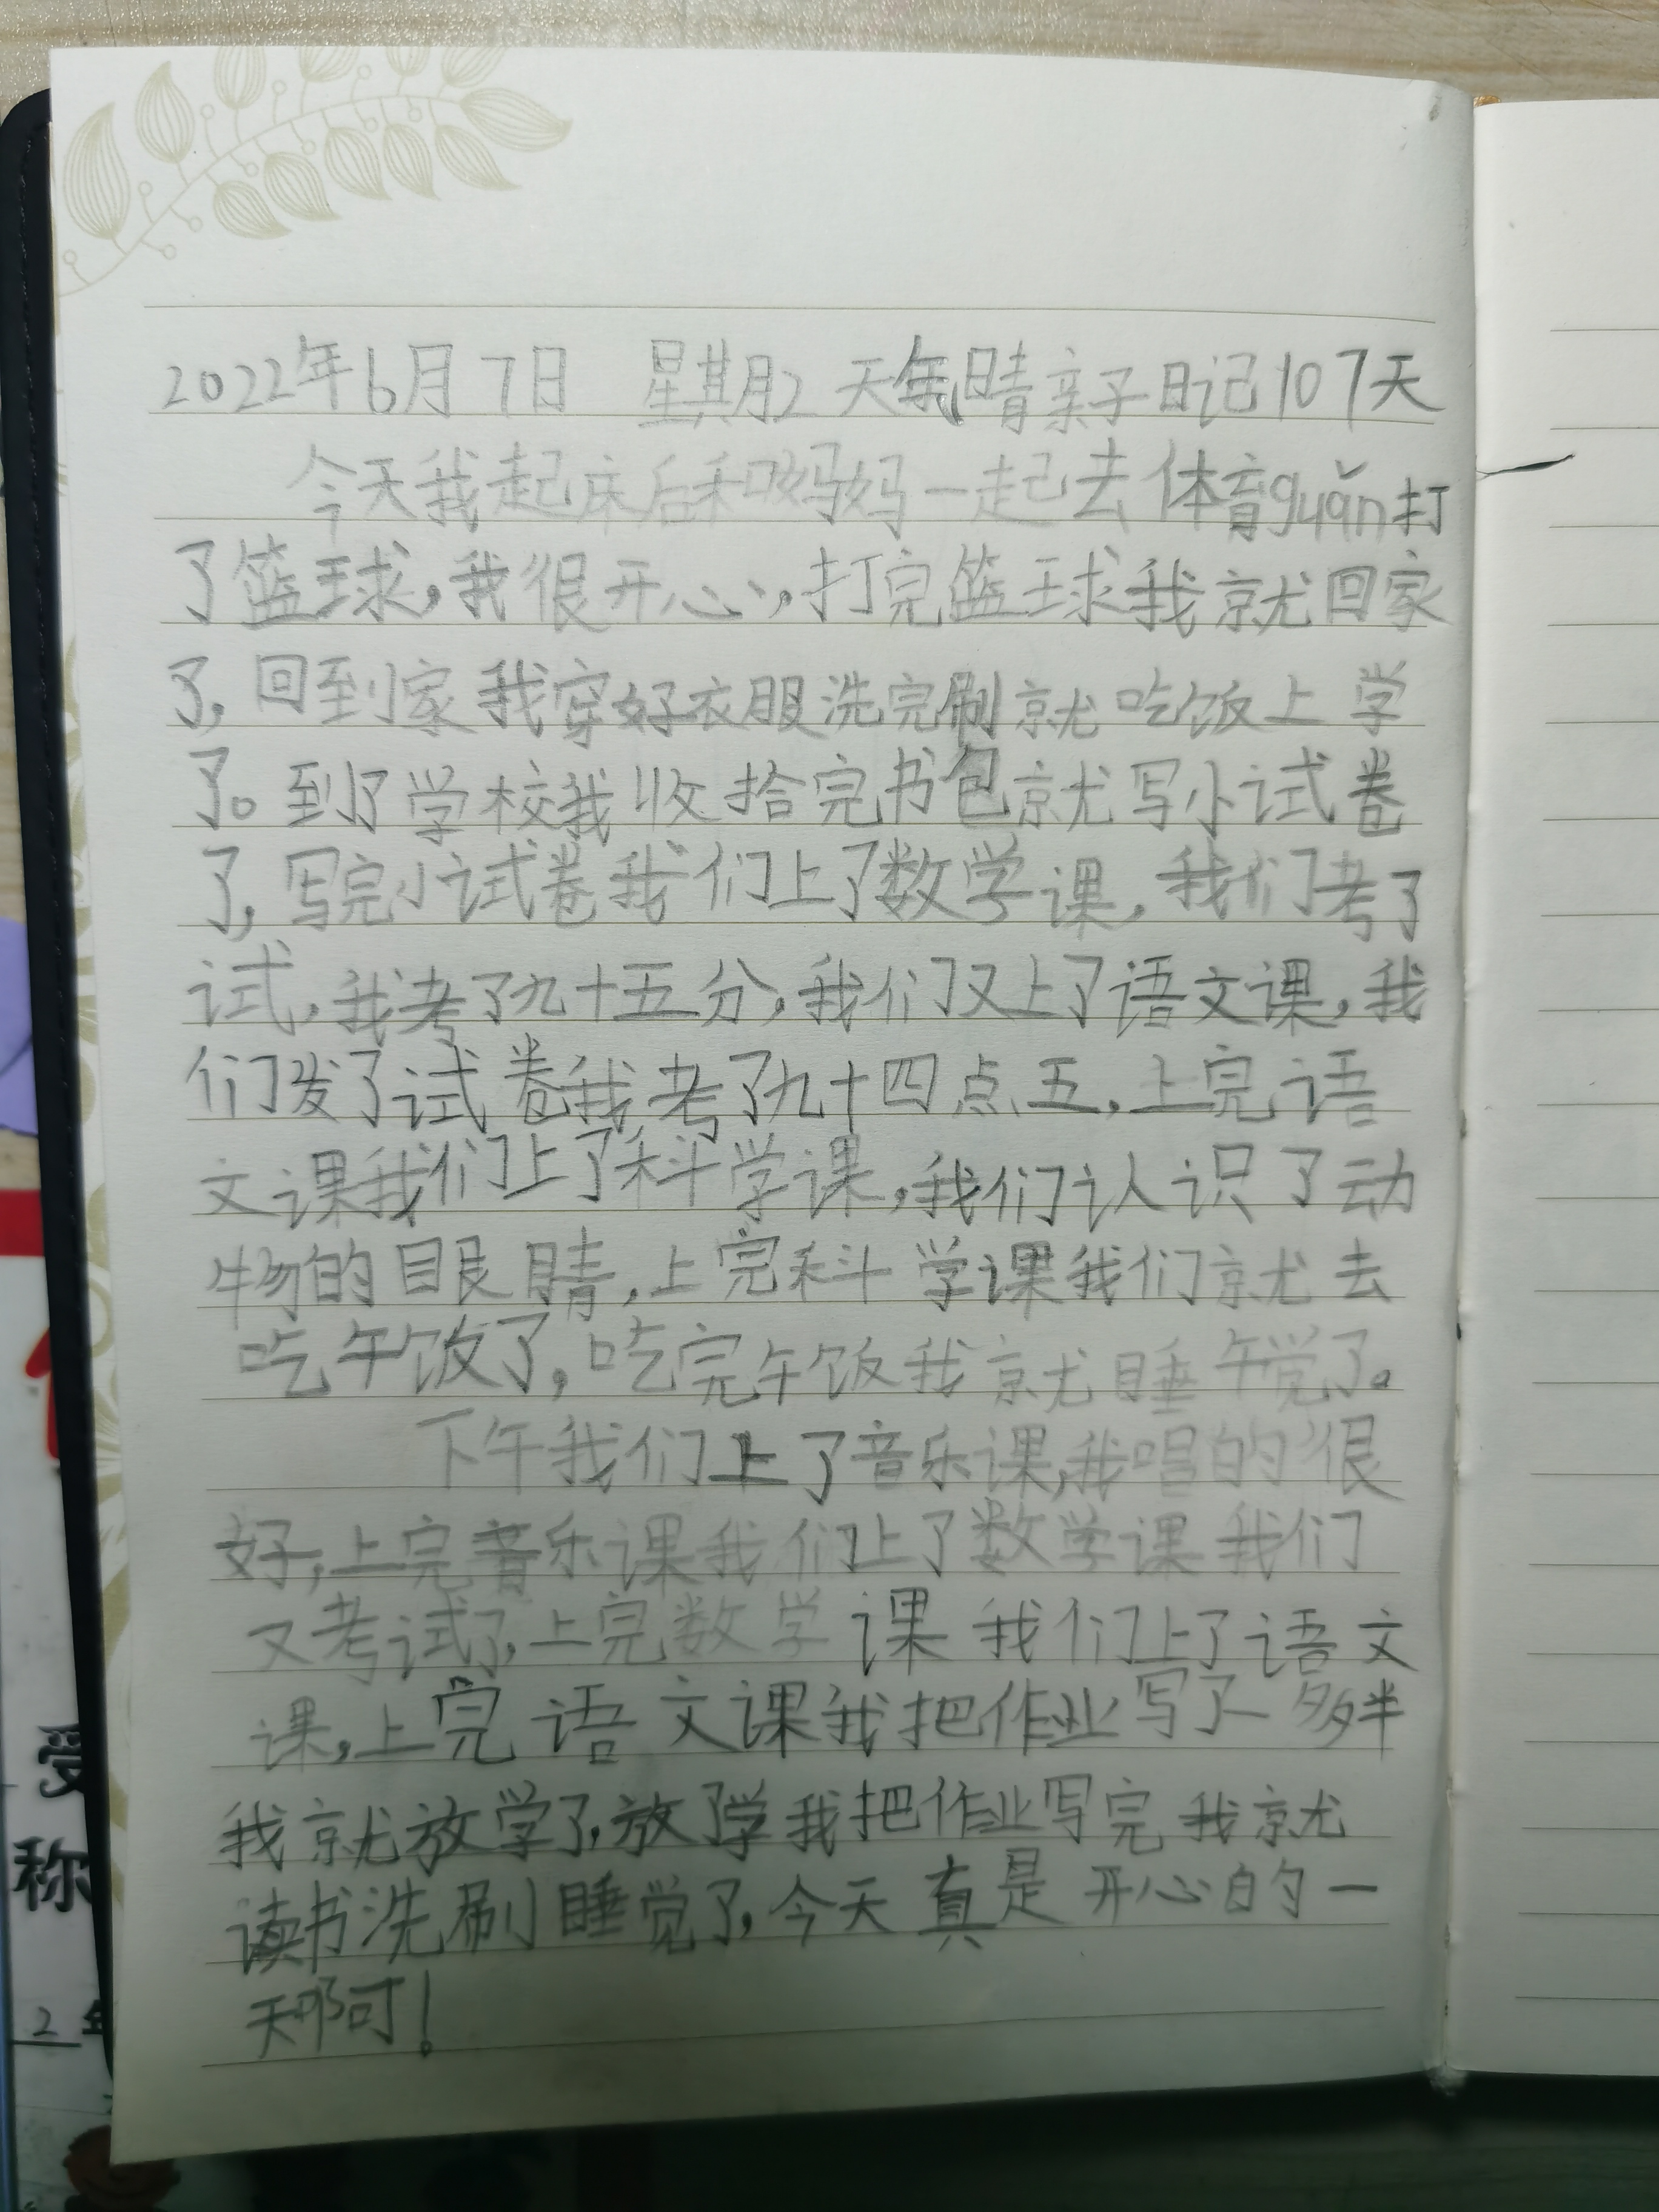 2022年6月7日 星期2 天气晴亲子日记107天
今天我起床后和妈妈一起去体育guǎn打
了篮球,我很开心,打完篮球我就回家
了,回到家我穿好衣服洗完刷就吃饭上学
了。到了学校我收拾完书包就写小试卷
了,写完小试卷我们上了数学课,我们考了
试,我考了九十五分,我们又上了语文课,我
们发了试卷我考了九十四点五,上完语
文课我们上了科学课,我们认识了动
物的眼睛,上完科学课我们就去
吃午饭了,吃完午饭我就睡午觉了。
下午我们上了音乐课,我唱的很
好,上完音乐课我们上了数学课我们
又考试了,上完数学课我们上了语文
课,上完语文课我把作业写了一多半
我就放学了,放了学我把作业写完我就
读书洗刷睡觉了,今天真是开心的一
天啊!
称
2年